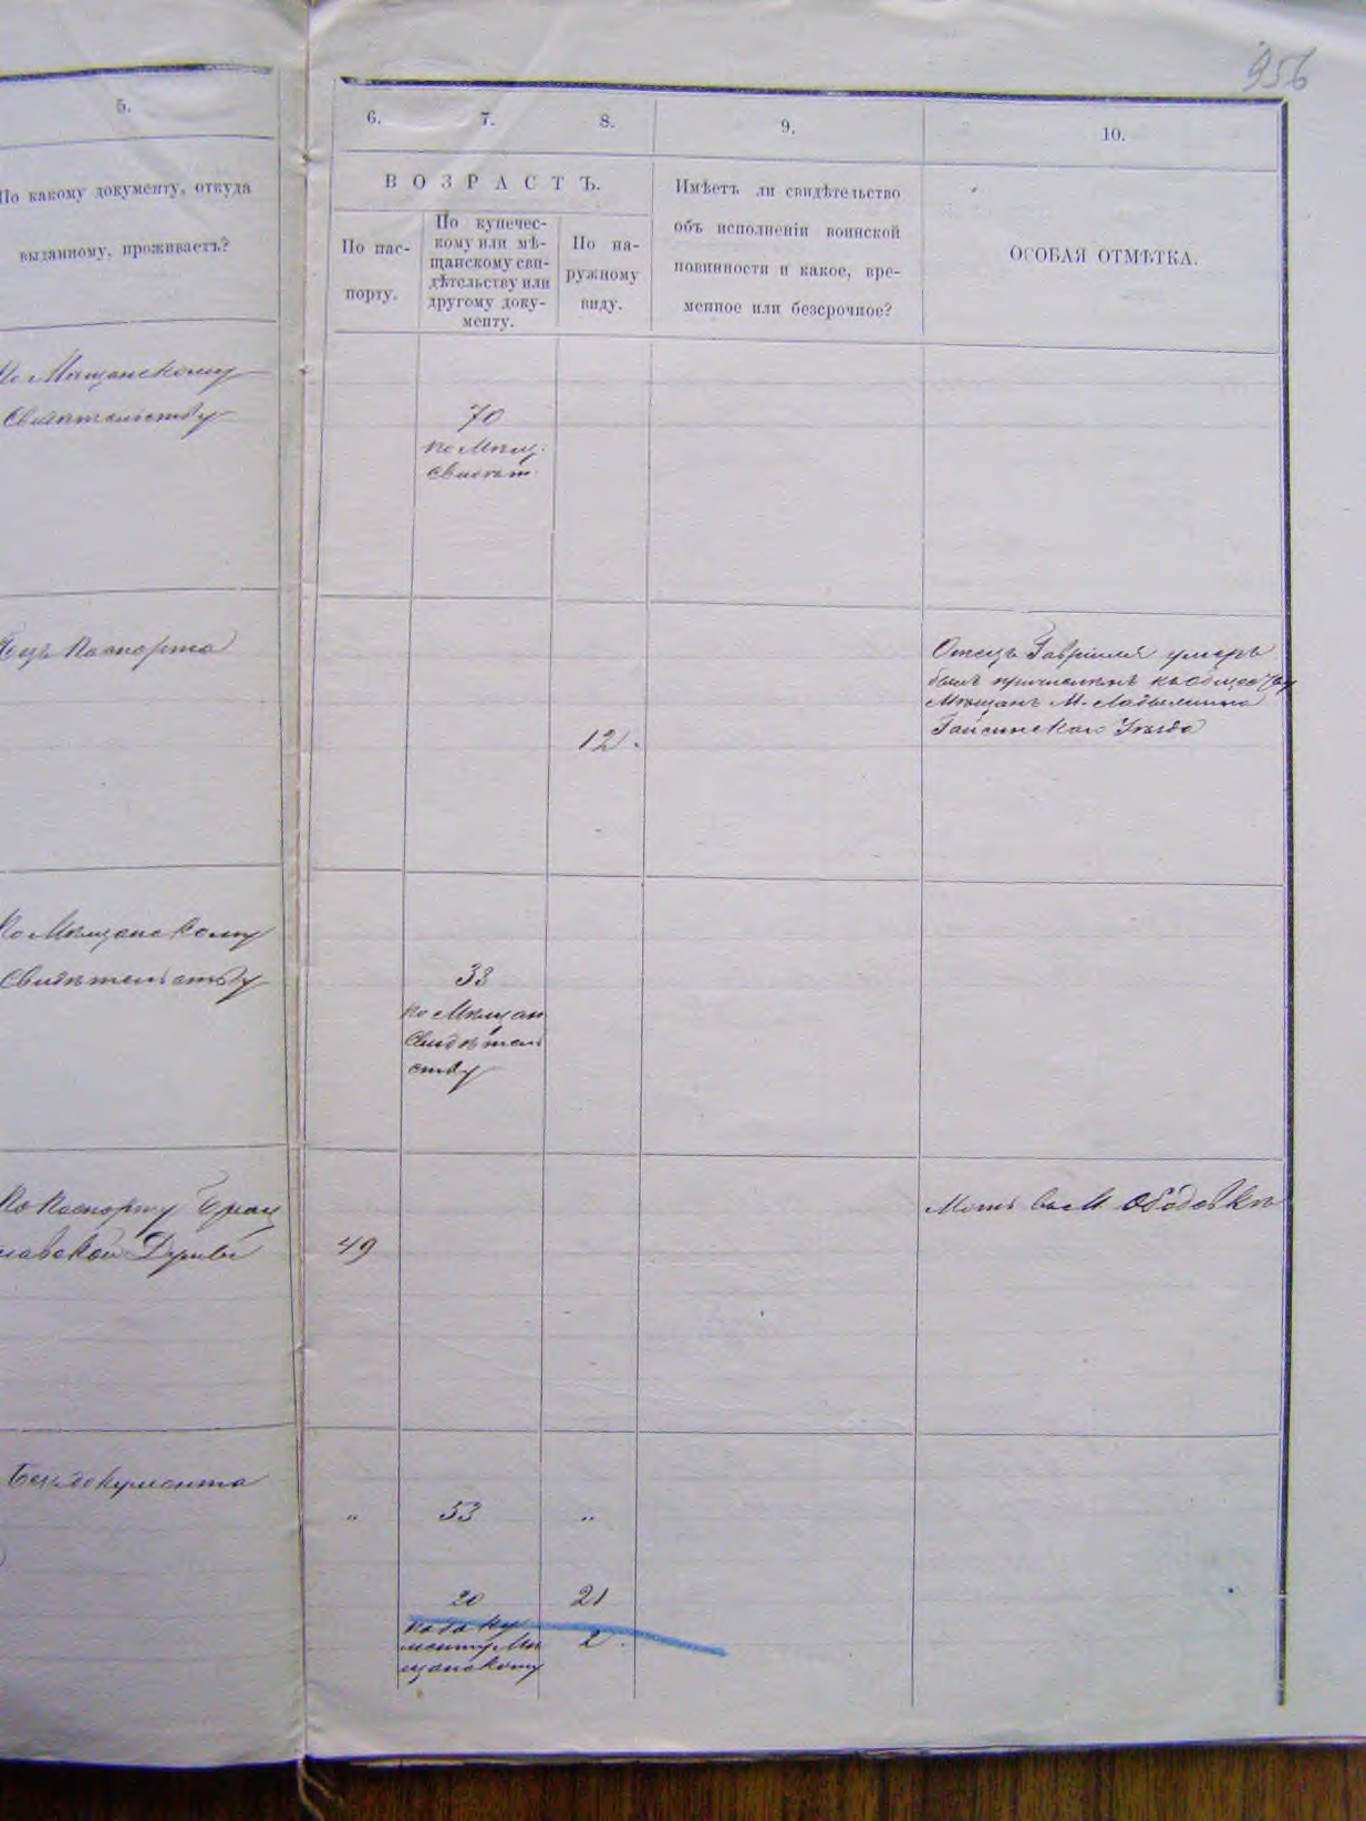 956
5.
6.
7.
8.
9.
10.
По какому документу, откуда
выданному, проживаетъ?
ВОЗРАСТЪ.
По пас-
порту.
По купечес-
кому или мѣ-
щанскому сви-
дѣтельству или
другому доку-
менту.
По на-
ружному
виду.
Имѣетъ ли свидѣтельство
объ исполненіи воинской
повинности и какое, вре-
менное или безсрочное?
ОСОБАЯ ОТМѢТКА.
По Мѣщанскому
Свидѣтельству
70
по Мѣщ:
свидѣт:
Безъ Паспорта
12.
Отецъ Гавріила умеръ
былъ причисленъ къ обществу
Мѣщанъ М.
Гайсинскаго Уѣзда
По Мѣщанскому
Свидѣтельству
33
по Мѣщан
Свидѣтель
ству
По Паспорту Брац
лавской Думы
49
Мать въ М. Ободовкѣ
Безъ документа
„
53
„
20
21
по доку
менту Мѣ
щанскому
2.